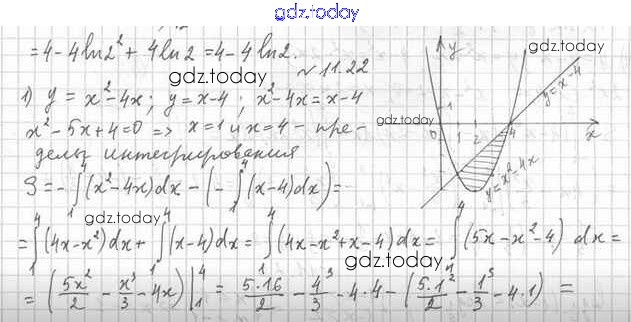 gdz.today
= 4 - 4 ln 2² + 4 ln 2 = 4 - 4 ln 2.
gdz.today
№ 11.22
1) y = x² - 4x; y = x - 4; x² - 4x = x - 4
x² - 5x + 4 = 0 => x = 1 и x = 4 - пре-
делы интегрирования
S = -∫₁⁴ (x² - 4x) dx - (-∫₁⁴ (x - 4) dx) =
gdz.today
= ∫₁⁴ (4x - x²) dx + ∫₁⁴ (x - 4) dx = ∫₁⁴ (4x - x² + x - 4) dx = ∫₁⁴ (5x - x² - 4) dx =
gdz.today
= (5x²/2 - x³/3 - 4x) |₁⁴ = 5·16/2 - 4³/3 - 4·4 - (5·1²/2 - 1³/3 - 4·1) =
y
gdz.today
y = x - 4
1
gdz.today
0 1 2 4 x
y = x² - 4x